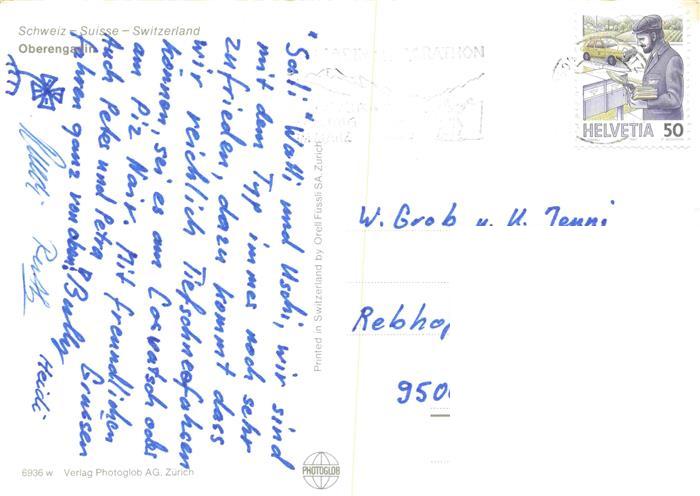 Schweiz – Suisse – Switzerland
Oberengadin
"Sali" Walli und Uschi, wir sind
mit dem Typ immer noch sehr
zufrieden, dazu kommt dass
wir reichlich Tiefschneefahren
können, sei es am Corvatsch oder
am Piz Nair. Mit freundlichen Grüssen
Auch Peter und Petra
fahren ganz von oben!
Ruedi Ruth Heidi
6936 w Verlag Photoglob AG, Zürich
PHOTOGLOB
Printed in Switzerland by Orell Füssli SA Zürich
MARATHON
HELVETIA 50
W. Grob u. U. Jenni
950